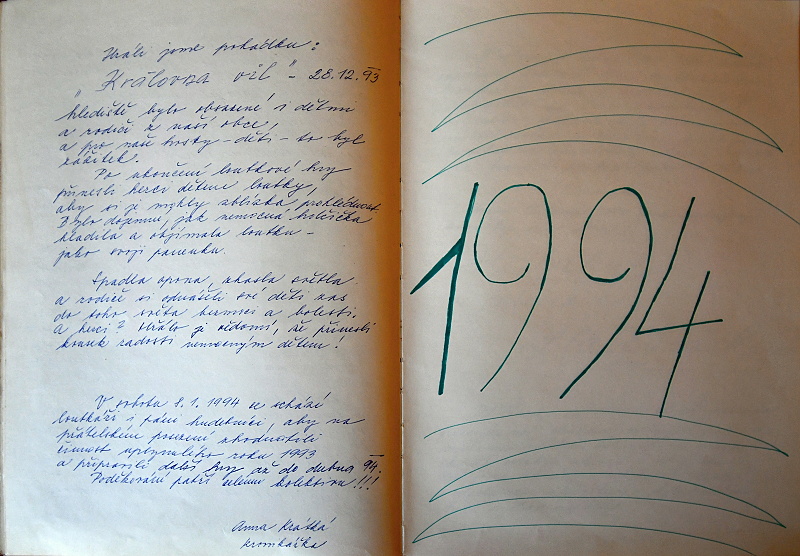 Hráli jsme pohádku:
"Královna vil" - 28.12.93
hlediště bylo obsazené i dětmi
a rodiči z naší obce,
a pro naše hosty - děti - to byl
zážitek.
Po ukončení loutkové hry
přinesli herci dětem loutky,
aby si je mohly zblízka prohlédnout
Bylo dojemné, jak nemocná holčička
hladila a objímala loutku -
jako svoji panenku.
Spadla opona, zhasla světla
a rodiče si odnášeli své děti zas
do toho světa nemoci a bolesti.
A herci? Hřálo je vědomí, že přinesli
kousek radosti nemocným dětem!
V sobotu 8.1.1994 se schází
loutkáři i páni hudebníci, aby na
přátelském posezení zhodnotili
činnost uplynulého roku 1993
a připravili další hry až do dubna 94.
Poděkování patří celému kolektivu!!!
Anna Krátká
kronikářka
1994